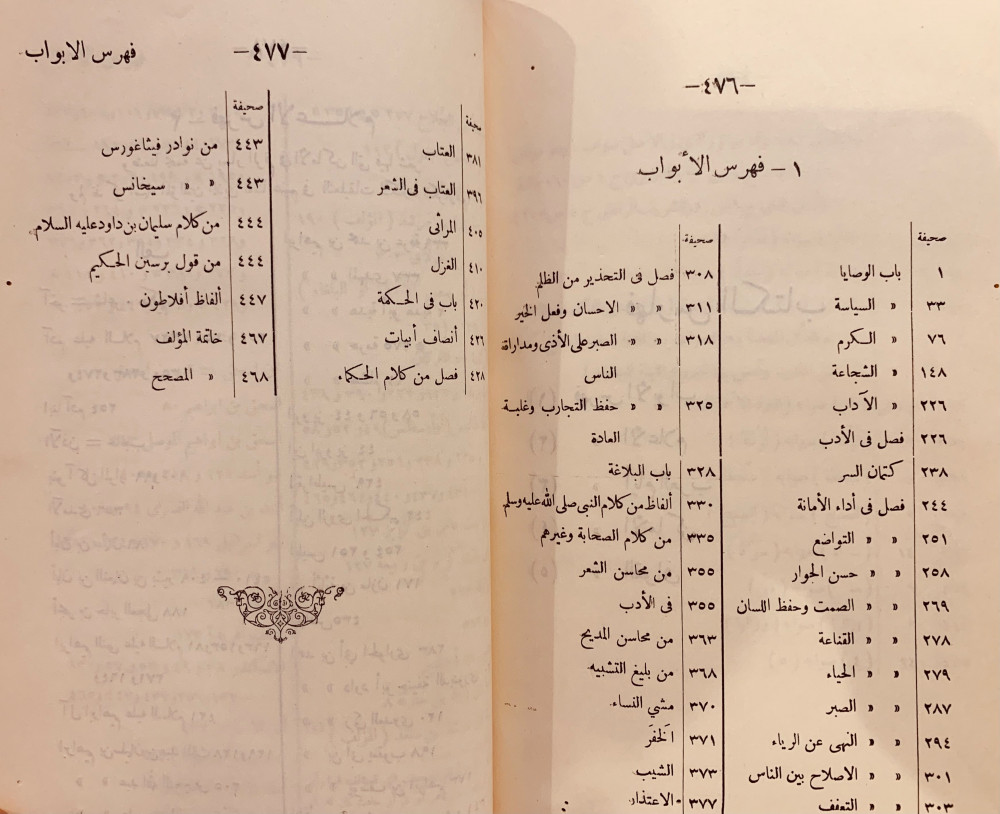 -٤٧٦-
١ - فهرس الأبواب
صحيفة
١ باب الوصايا
٣٣ « السياسة
٧٦ « الكرم
١٤٨ « الشجاعة
٢٢٦ « الآداب
٢٢٦ فصل فى الأدب
٢٣٨ كتمان السر
٢٤٤ فصل فى أداء الأمانة
٢٥١ « « التواضع
٢٥٨ « « حسن الجوار
٢٦٩ « « الصمت وحفظ اللسان
٢٧٨ « « القناعة
٢٧٩ « « الحياء
٢٨٧ « « الصبر
٢٩٤ « « النهى عن الرياء
٣٠١ « « الاصلاح بين الناس
٣٠٣ « « التعفف
صحيفة
٣٠٨ فصل فى التحذير من الظلم
٣١١ « « الاحسان وفعل الخير
٣١٨ « « الصبر على الأذى ومداراة
الناس
٣٢٥ « « حفظ التجارب وغلبة
العادة
٣٢٨ باب البلاغة
٣٣٠ ألفاظ من كلام النبى صلى الله عليه وسلم
٣٣٥ من كلام الصحابة وغيرهم
٣٥٥ من محاسن الشعر
٣٥٥ فى الأدب
٣٦٣ من محاسن المديح
٣٦٨ من بليغ التشبيه
٣٧٠ مشي النساء
٣٧١ الخَفَر
٣٧٣ الشيب
٣٧٧ الاعتذار
-٤٧٧- فهرس الابواب
صحيفة
٣٨١ العتاب
٣٩٦ العتاب فى الشعر
٤٠٥ المراثى
٤١٠ الغزل
٤٢٠ باب فى الحكمة
٤٢٦ أنصاف أبيات
٤٢٨ فصل من كلام الحكماء
صحيفة
٤٤٣ من نوادر فيثاغورس
٤٤٣ « « سيخانس
٤٤٤ من كلام سليمان بن داود عليه السلام
٤٤٤ من قول برسين الحكيم
٤٤٧ ألفاظ أفلاطون
٤٦٧ خاتمة المؤلف
٤٦٨ « المصحح